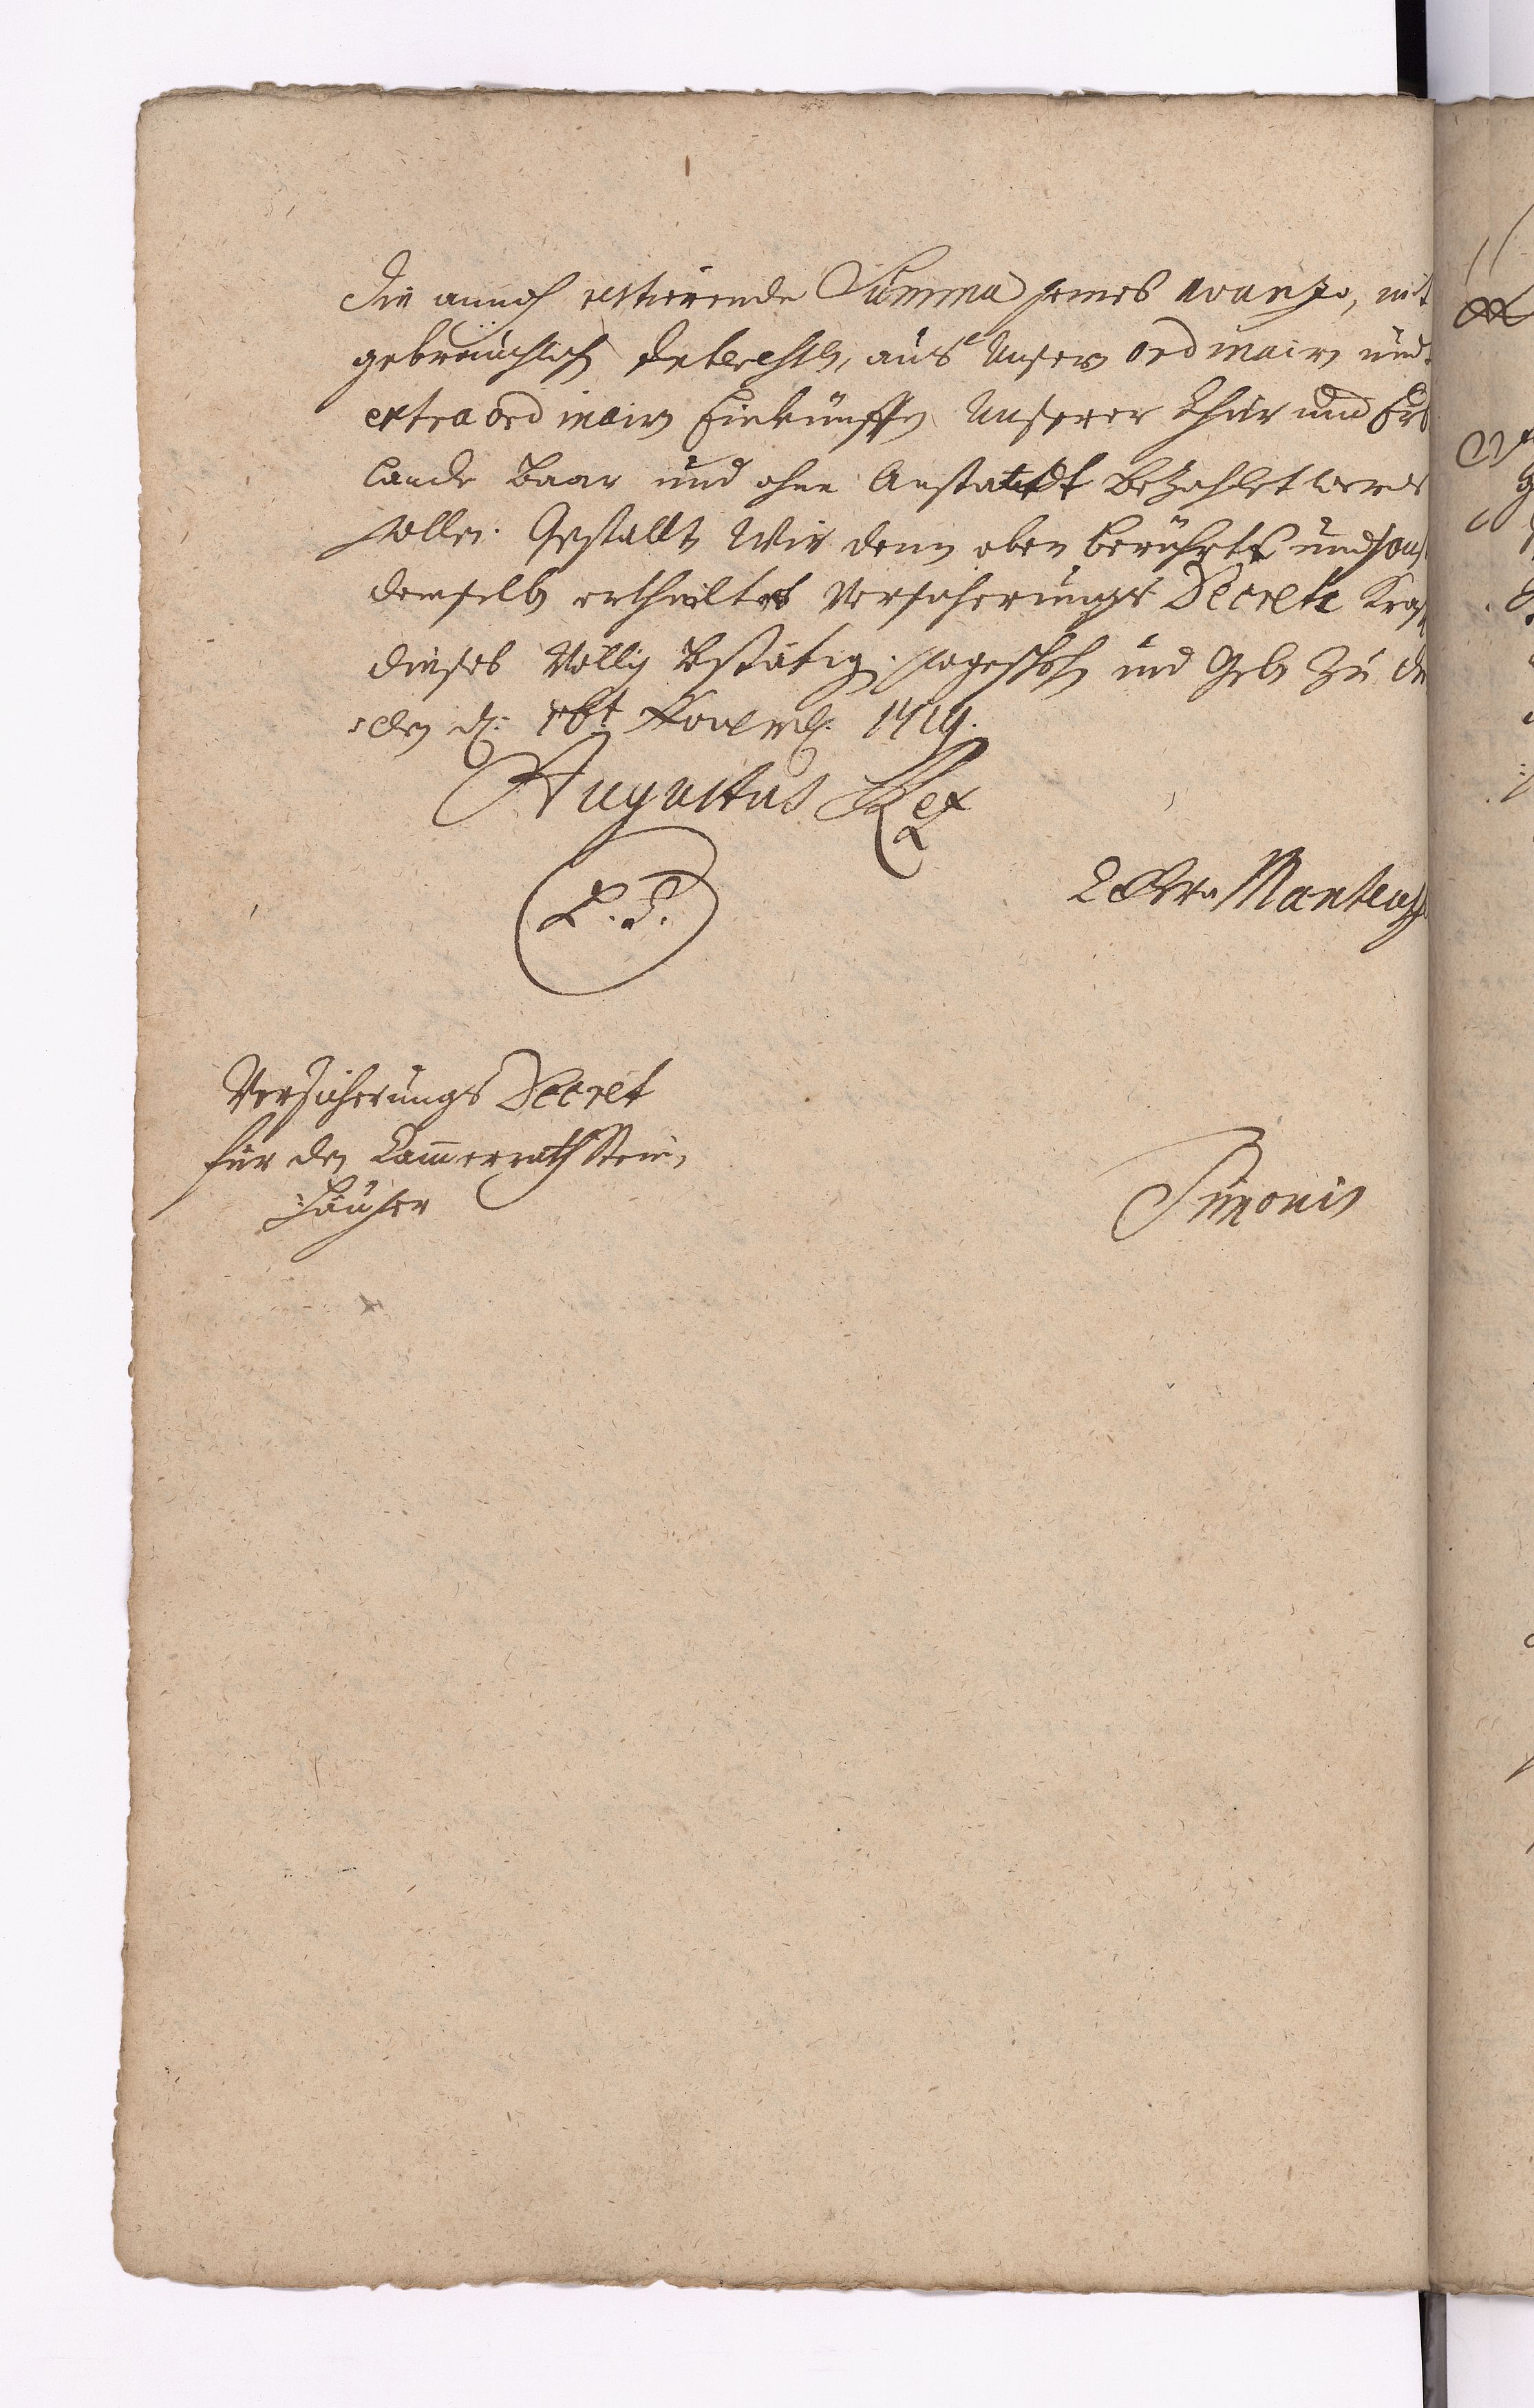 die annoch restierende Summa seines avanzo, mit
gebräuchlich Interessen, aus Unsern ordinairn und
extraordinairn Einkünfften Unserer Chur und Erb
Lande Baar und ohne Anstandt bezahlet werden
sollen. Gestallt Wir denn oben berührtes und sonst
demselben ertheiltes Versicherungs Decrete Krafft
dieses Völlig bestätigen. sogeschehen und Geben Zu Dre
sden d. Novembr. 1719.
Augustus Rex
L. S.
Manteuff
Versicherungs Decret
für den Cammerrath Stein,
häuser
Simonis